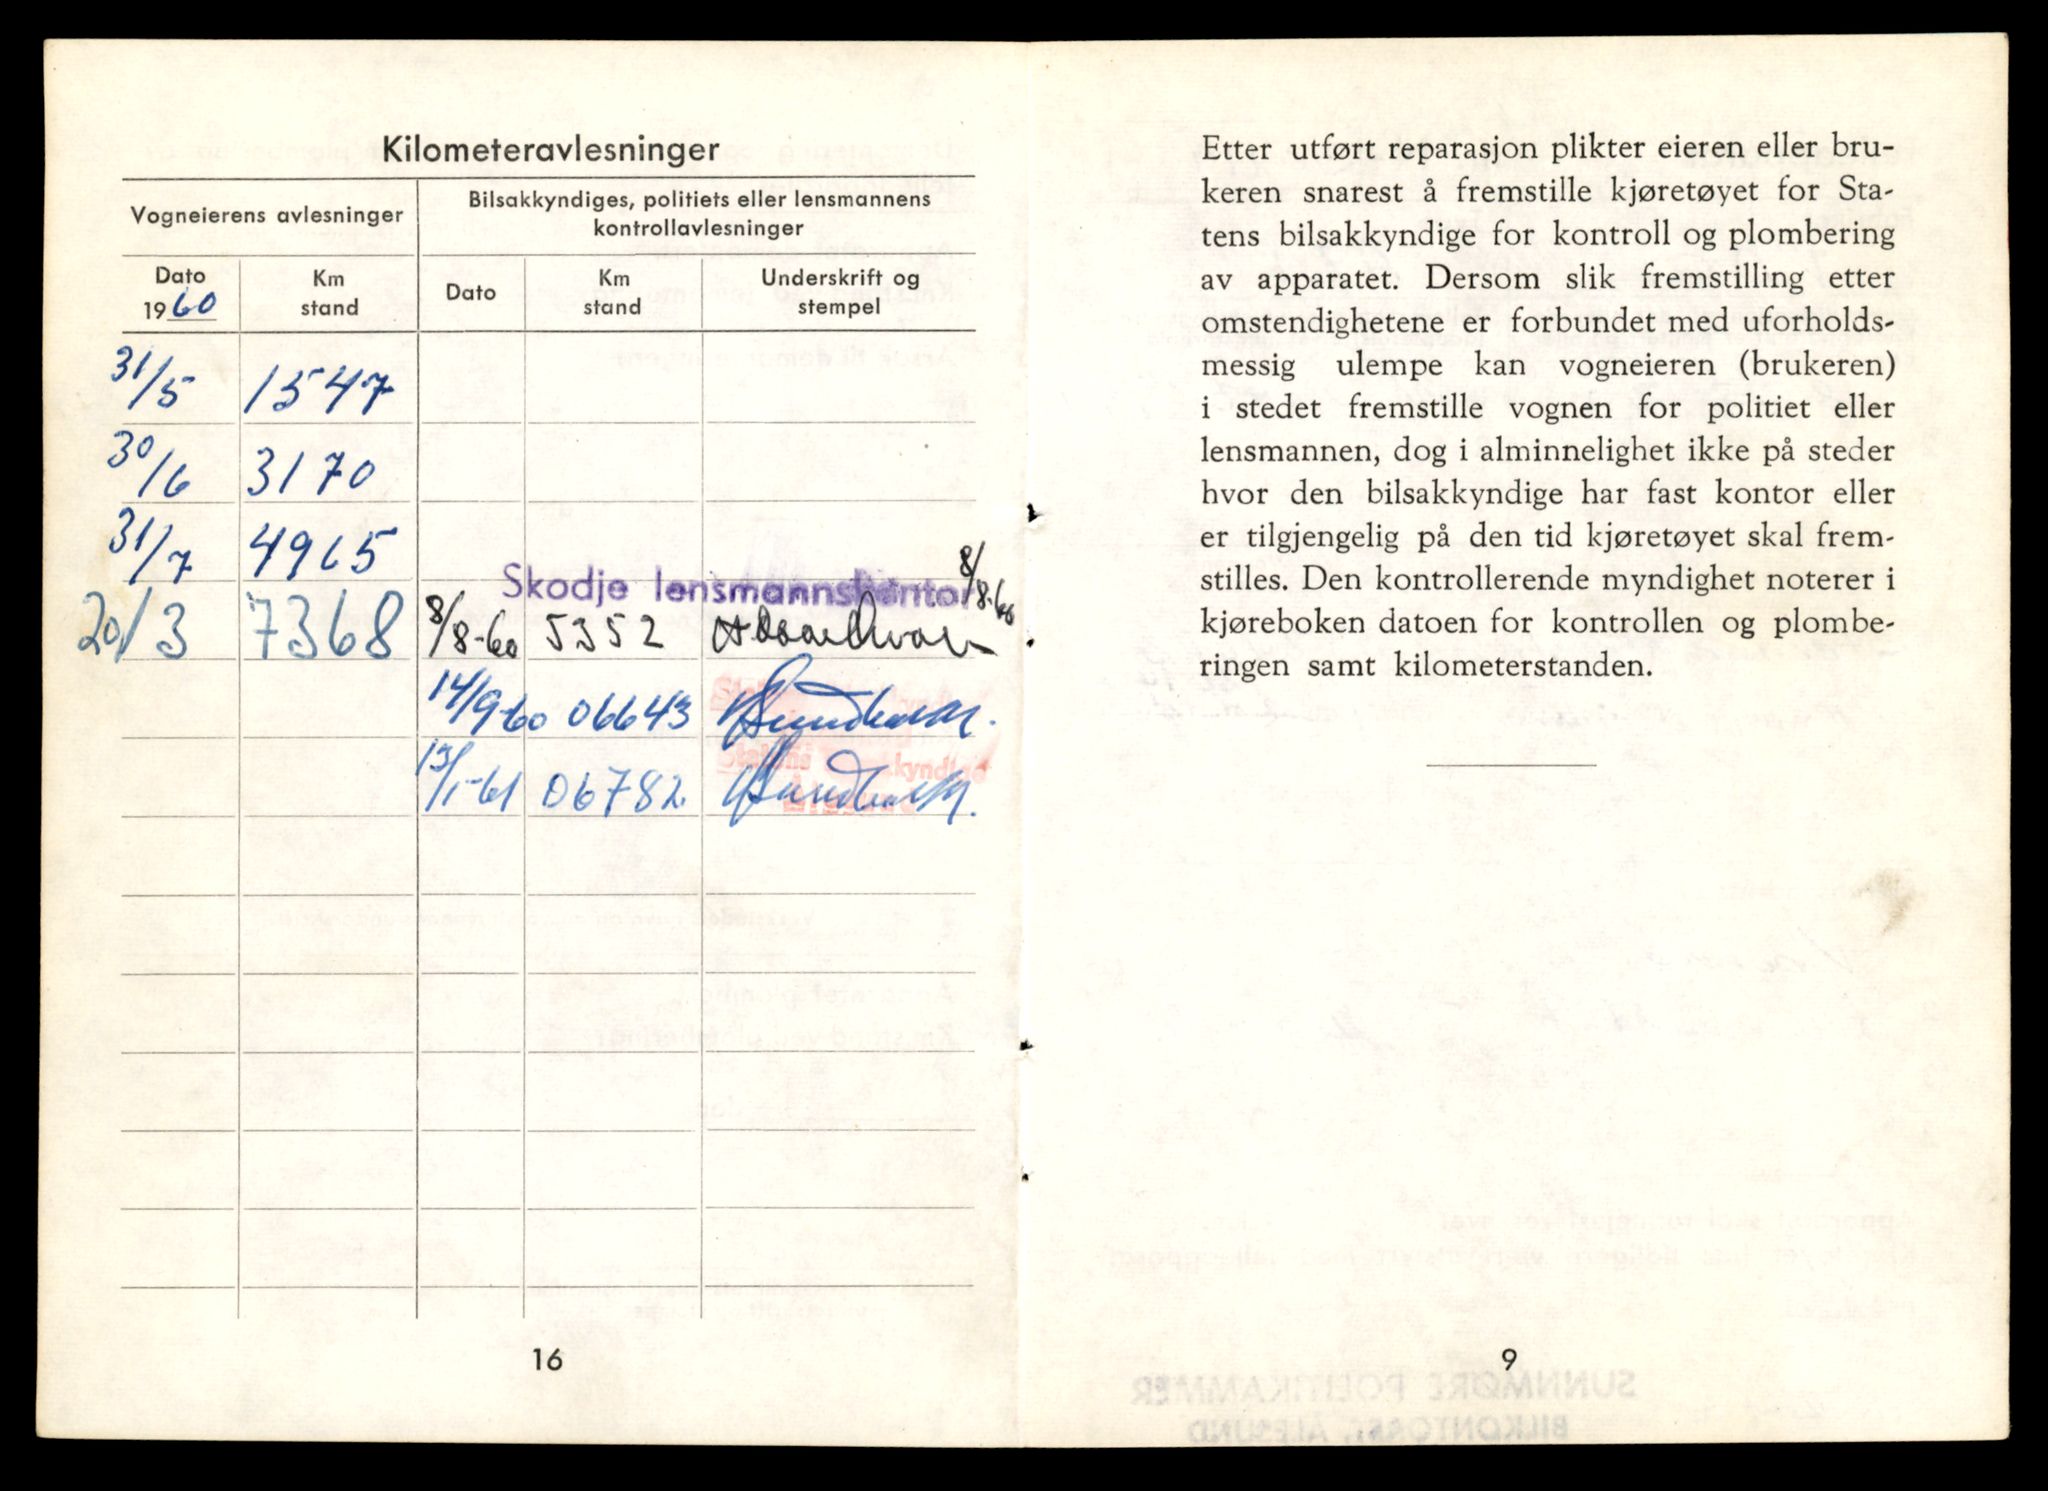 Kilometeravlesninger
Vogneierens avlesninger
Bilsakkyndiges, politiets eller lensmannens
kontrollavlesninger
Dato
1960
Km
stand
Dato
Km
stand
Underskrift og
stempel
31/5 1547
30/6 3170
31/7 4965
Skodje lensmannskontor 8/8-60
20/3 7368 8/8-60 5352
14/9-60 06643
13/1-61 06782
Statens bilsakkyndige
Ålesund
16
Etter utført reparasjon plikter eieren eller bru-
keren snarest å fremstille kjøretøyet for Sta-
tens bilsakkyndige for kontroll og plombering
av apparatet. Dersom slik fremstilling etter
omstendighetene er forbundet med uforholds-
messig ulempe kan vogneieren (brukeren)
i stedet fremstille vognen for politiet eller
lensmannen, dog i alminnelighet ikke på steder
hvor den bilsakkyndige har fast kontor eller
er tilgjengelig på den tid kjøretøyet skal frem-
stilles. Den kontrollerende myndighet noterer i
kjøreboken datoen for kontrollen og plombe-
ringen samt kilometerstanden.
9
SUNNMØRE POLITIKAMMER
BILKONTORET, ÅLESUND